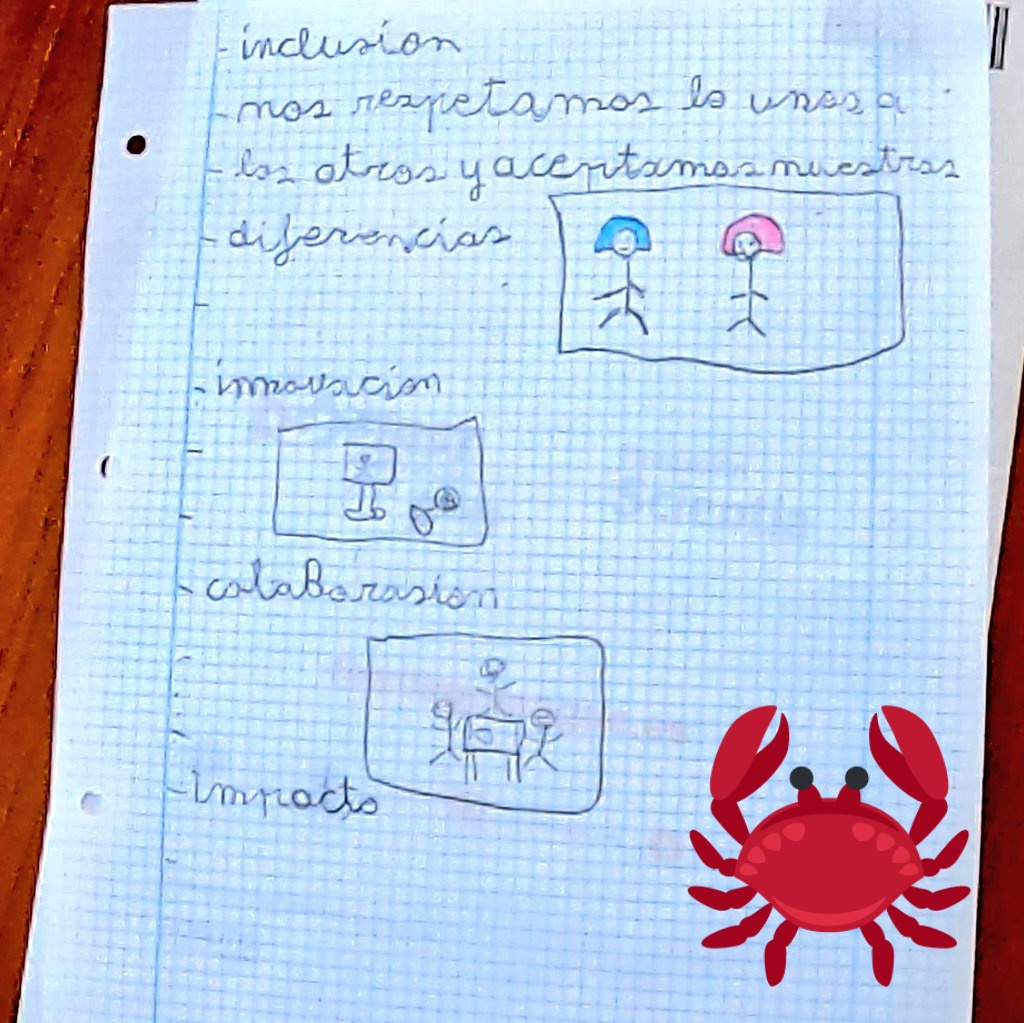 - inclusion
- nos respetamos lo unos a
- los otros y aceptamos nuestras
- diferencias
- innovacion
- colaborasion
- impacto